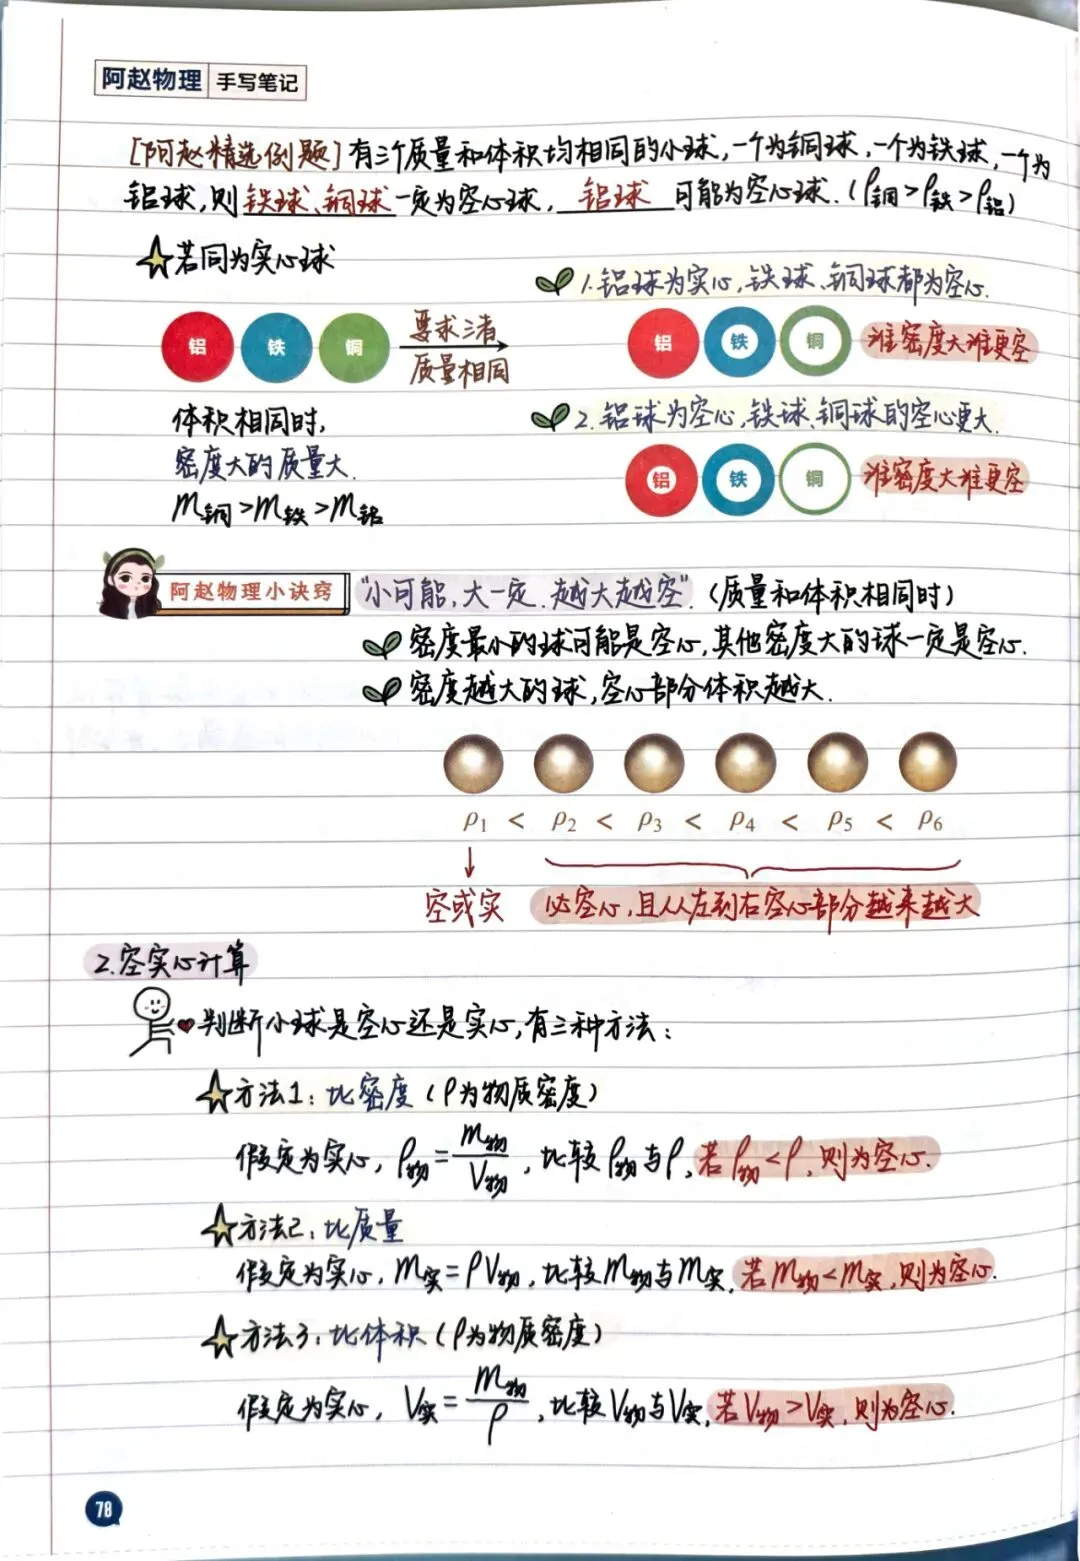 阿赵物理 手写笔记
[阿赵精选例题] 有三个质量和体积均相同的小球,一个为铜球,一个为铁球,一个为
铝球,则 铁球、铜球 一定为空心球, 铝球 可能为空心球.(ρ铜>ρ铁>ρ铝)
若同为实心球
1.铝球为实心,铁球、铜球都为空心.
铝 铁 铜 要求三者 质量相同 铝 铁 铜 谁密度大谁更空
体积相同时,
2.铝球为空心,铁球、铜球的空心更大.
密度大的质量大.
铝 铁 铜 谁密度大谁更空
m铜>m铁>m铝
阿赵物理小诀窍 "小可能,大一定.越大越空".(质量和体积相同时)
密度最小的球可能是空心,其他密度大的球一定是空心.
密度越大的球,空心部分体积越大.
ρ1 < ρ2 < ρ3 < ρ4 < ρ5 < ρ6
空或实 必空心,且从左到右空心部分越来越大
2.空实心计算
判断小球是空心还是实心,有三种方法:
方法1:比密度(ρ为物质密度)
假定为实心,ρ物=m物/V物,比较ρ物与ρ,若ρ物<ρ,则为空心.
方法2:比质量
假定为实心,m实=ρV物,比较m物与m实,若m物<m实,则为空心.
方法3:比体积(ρ为物质密度)
假定为实心,V实=m物/ρ,比较V物与V实,若V物>V实,则为空心.
78